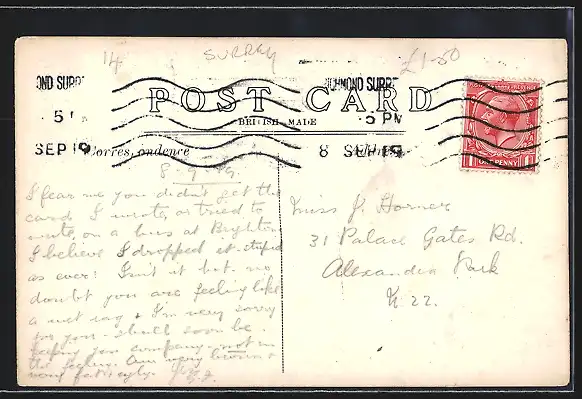 14 SURREY £1-50
OND SURR RICHMOND SURR
POST CARD
5 PM
BRITISH MADE
SEP 19 Correspondence 8 SEP 19
POSTAGE REVENUE
1 ONE PENNY 1
8-9-19.
I fear me you didn't get the
card I wrote, or tried to
write, on a bus at Brighton
I believe I dropped it. stupid
as ever! Isn't it hot. no
doubt you are feeling like
a wet rag & I'm very sorry
for you. shall soon be
keeping you company - not in
the feeling. Am very brown &
Miss J. Horner
31 Palace Gates Rd.
Alexandra Park
N 22.